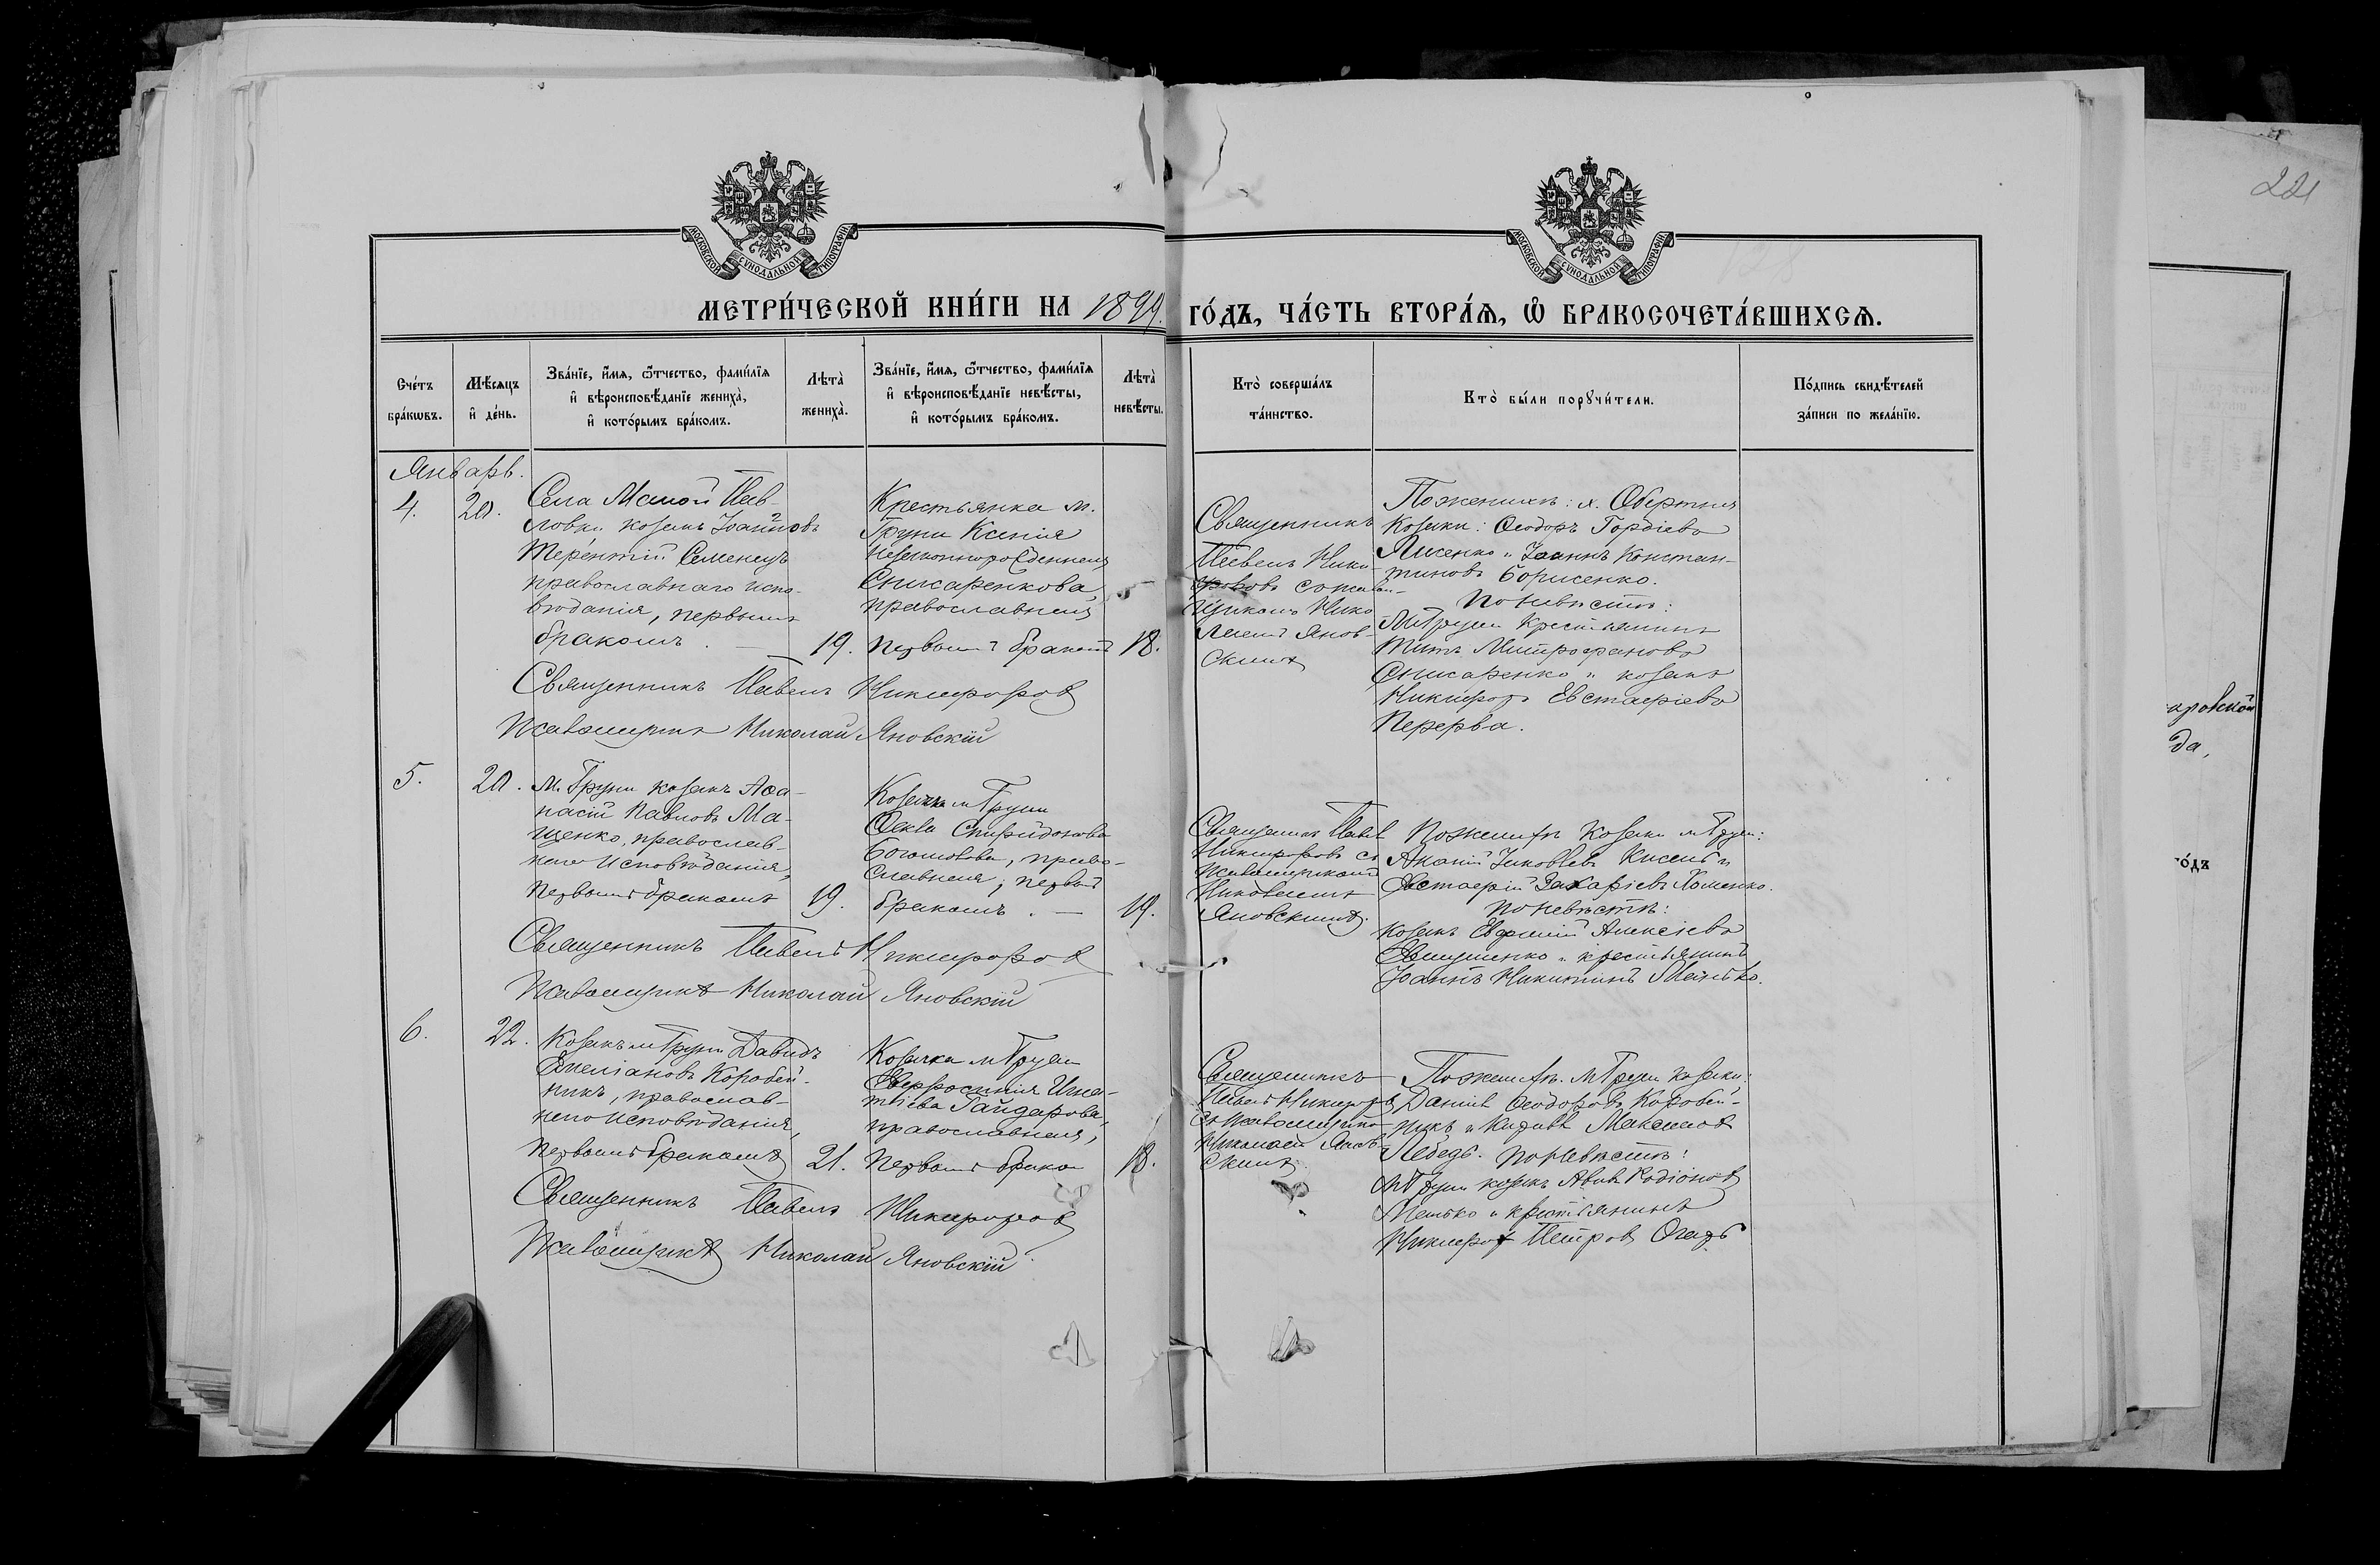 МОСКОВСКОЙ СУНОДАЛЬНОЙ ТИПОГРАФІИ
МОСКОВСКОЙ СУНОДАЛЬНОЙ ТИПОГРАФІИ
МЕТРИ́ЧЕСКОЙ КНИ́ГИ НА 1899. ГО́ДЪ, ЧА́СТЬ ВТОРА́Ѧ, Ѽ БРАКОСОЧЕТА́ВШИХСѦ.
Сче́тъ бра́кѡвъ.
Мѣ́сѧцъ и҆ де́нь.
Зва́нїе, и҆́мѧ, ѻ҆́тчество, фами́лїѧ
и҆ вѣроисповѣ́данїе жениха̀,
и҆ кото́рымъ бра́комъ.
Лѣта̀ жениха̀.
Зва́нїе, и҆́мѧ, ѻ҆́тчество, фами́лїѧ
и҆ вѣроисповѣ́данїе невѣ́сты,
и҆ кото́рымъ бра́комъ.
Лѣта̀ невѣ́сты.
Кто̀ соверша́лъ та́инство.
Кто̀ бы́ли порꙋчи́тели.
По́дпись свидѣ́телей
за́писи по жела́нїю.
Январь.
4.
20.
Села Малой Пав-
ловки козакъ Іоанновъ
Терентій Семенецъ
православнаго испо-
вѣданія, первымъ
бракомъ.
19.
Крестьянка м.
Груни Ксенія
незаконнорожденная
Снисаренкова,
православная
первымъ бракомъ
18.
Священникъ
Павелъ Ники-
форовъ
Нико
лаемъ Янов-
скимъ
По женихѣ: х.
Козаки: Ѳеодоръ Гордіевъ
Лисенко и Іоаннъ Констан-
тиновъ Борисенко.
По невѣстѣ:
М. Груни крестьянинъ
Титъ Митрофановъ
Снисаренко и козакъ
Никифоръ Евстафіевъ
Перерва.
Священникъ Павелъ Никифоровъ
Псаломщикъ Николай Яновскій
5.
20.
М. Груни козакъ Аѳа-
насій Павловъ Ма-
щенко, православ-
наго исповѣданія,
первымъ бракомъ
19.
Козачка м. Груни
Ѳекла Спиридонова
право-
славная, первымъ
бракомъ.
19.
Священникъ Павелъ
Никифоровъ съ
псаломщикомъ
Николаемъ
Яновскимъ.
По женихѣ козаки м. Груни:
Ананій Іаковлевъ Кисель и
Евстафій Захаріевъ Хоменко.
По невѣстѣ:
Козакъ Евфимій Алексіевъ
и крестьянинъ
Іоаннъ Никитинъ
Священникъ Павелъ Никифоровъ
Псаломщикъ Николай Яновскій
6.
22.
Козакъ м. Груни Давидъ
Емеліановъ Коробей-
никъ, православ-
наго исповѣданія,
первымъ бракомъ
21.
Козачка м. Груни
Евфросинія Игна-
тіева Гайдарова,
православная,
первымъ браком
18.
Священникъ
Павелъ Никифоровъ
съ псаломщикомъ
Николаемъ Янов-
скимъ.
По женихѣ. М. Груни козаки:
Даніилъ Ѳеодоровъ Коробей-
никъ и Кириллъ Максимовъ
Лебедь. По невѣстѣ:
М. Груни козакъ Родіоновъ
и крестьянинъ
Никифоръ Петровъ
Священникъ Павелъ Никифоровъ
Псаломщикъ Николай Яновскій.
221
аровской
да,
го́дъ